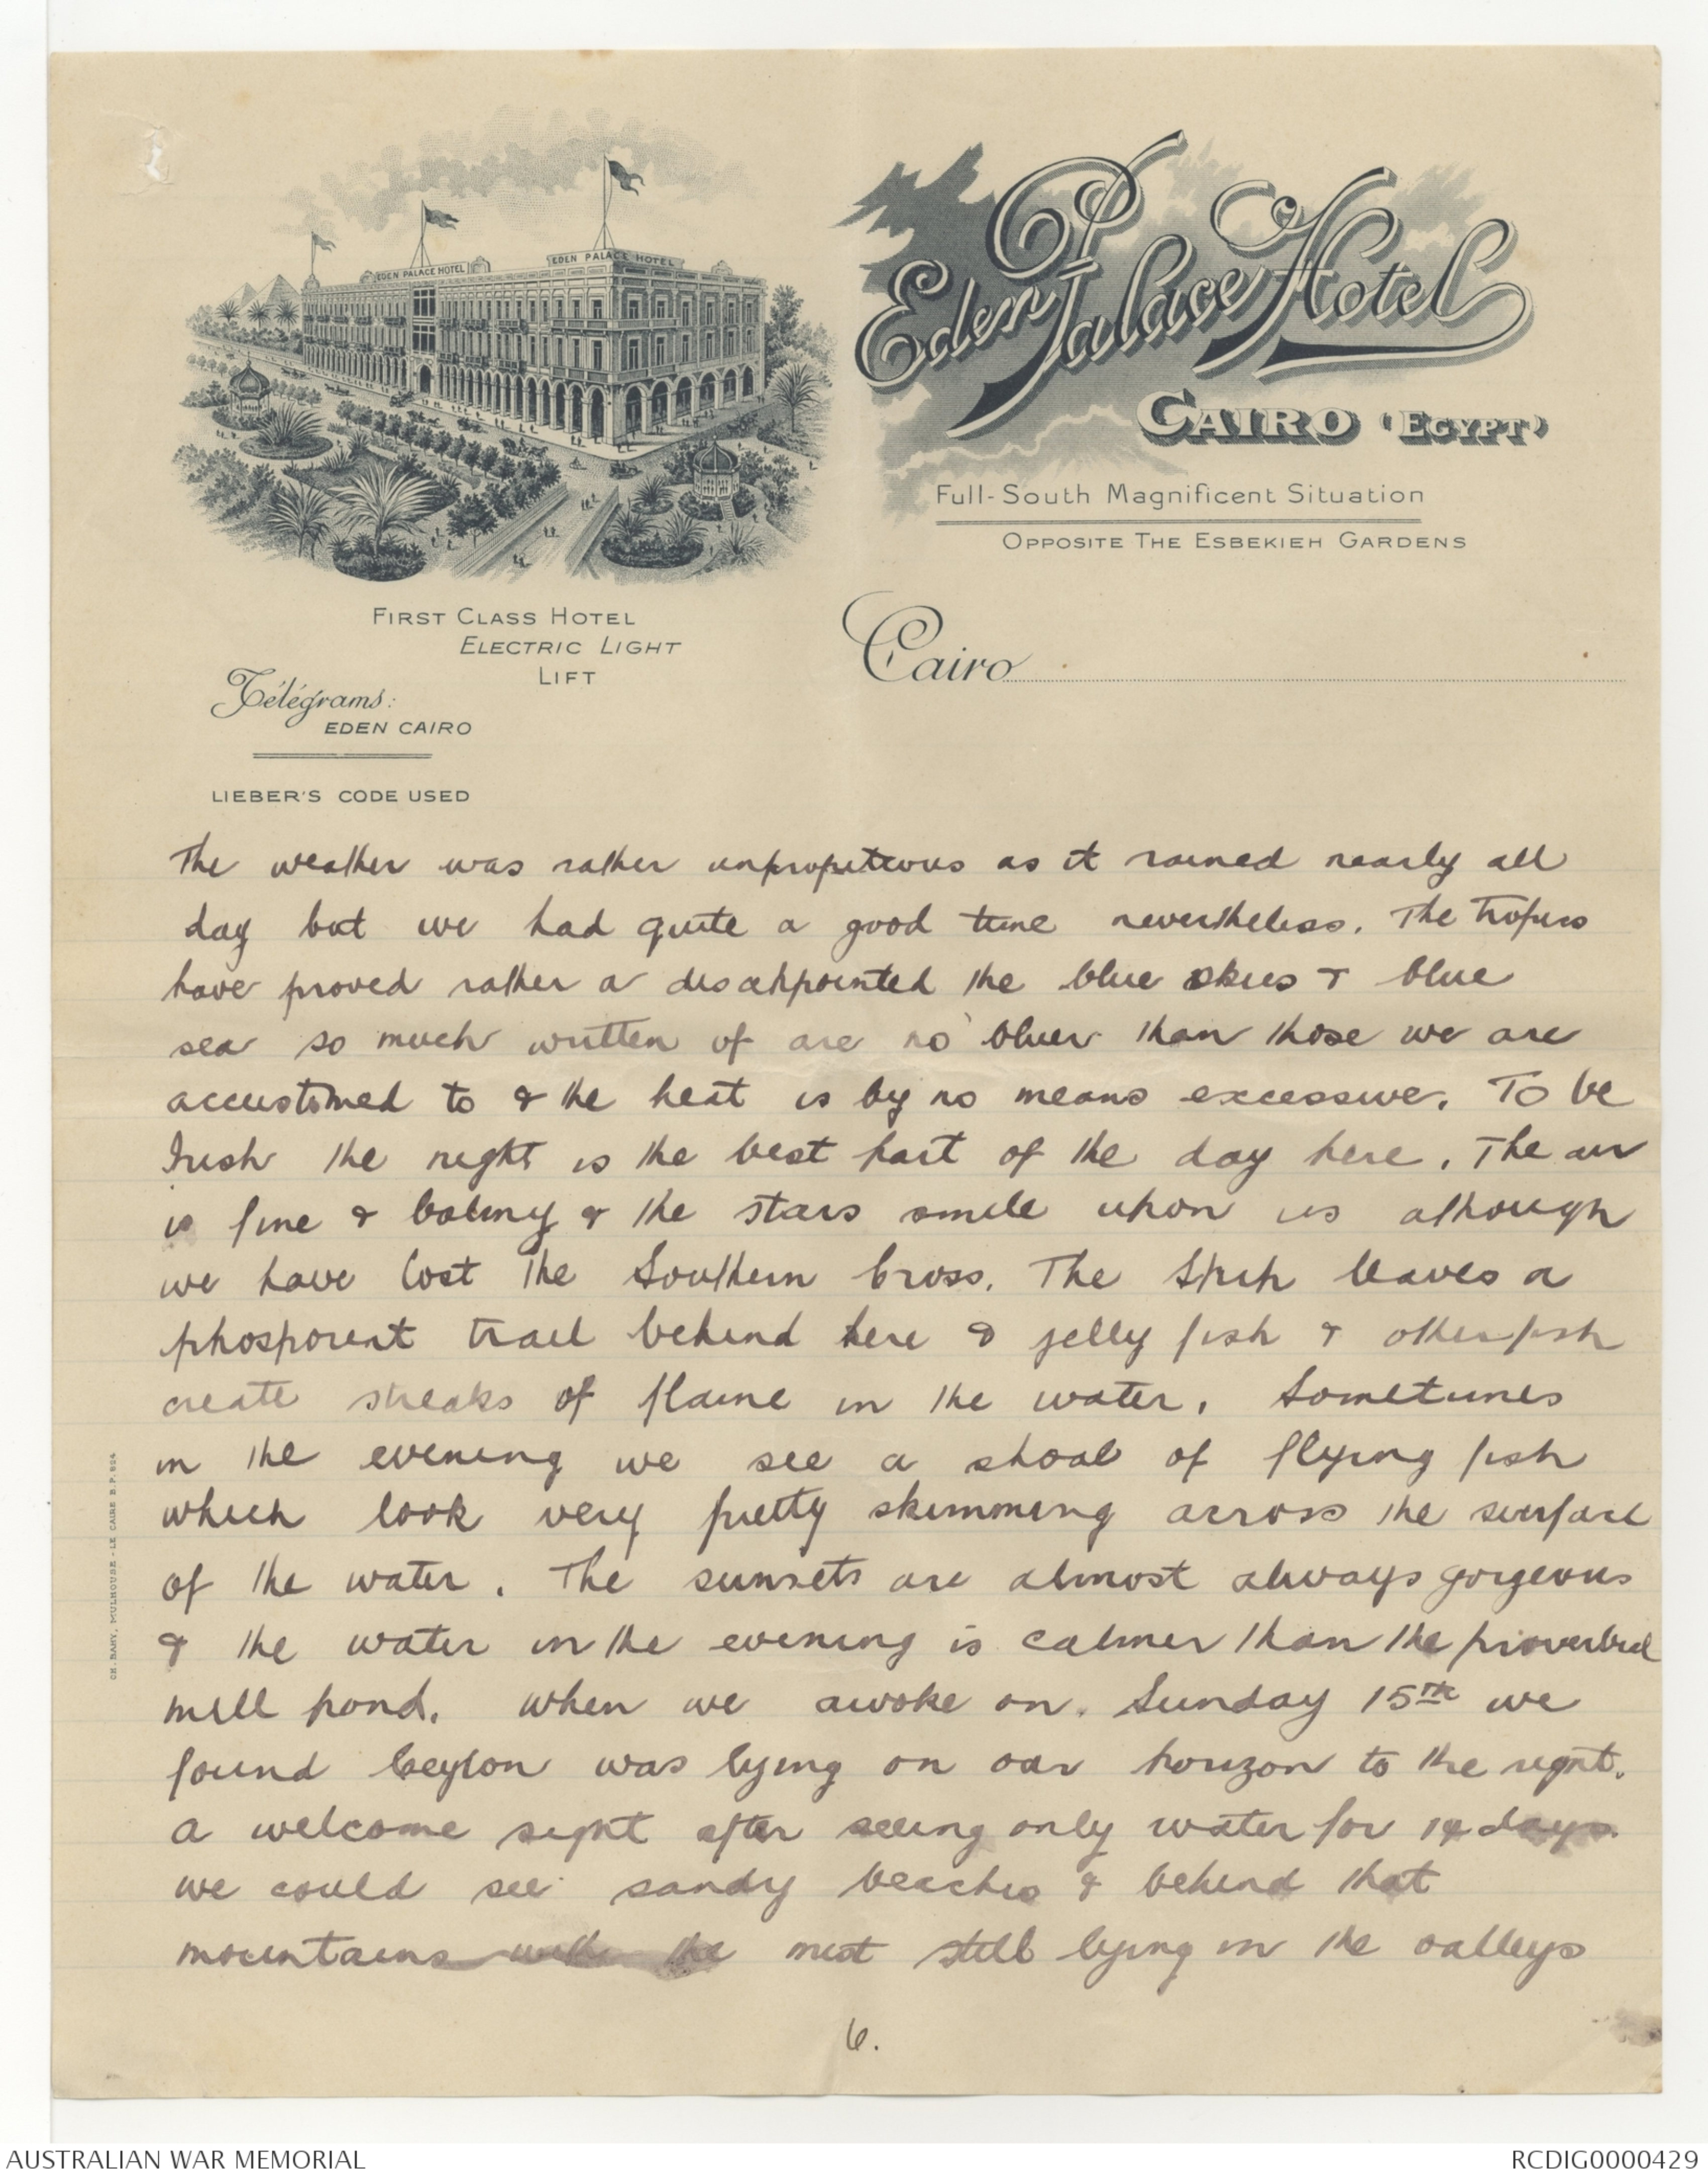 EDEN PALACE HOTEL
EDEN PALACE HOTEL
Eden Palace Hotel
CAIRO (EGYPT)
Full-South Magnificent Situation
OPPOSITE THE ESBEKIEH GARDENS
FIRST CLASS HOTEL
ELECTRIC LIGHT
LIFT
Télégrams:
EDEN CAIRO
LIEBER'S CODE USED
Cairo
The weather was rather unpropitious as it rained nearly all
day but we had quite a good time nevertheless. The Tropics
have proved rather a disappointed the blue skies & blue
sea so much written of are no bluer than those we are
accustomed to & the heat is by no means excessive. To be
Irish the night is the best part of the day here. The air
is fine & balmy & the stars smile upon us although
we have lost the Southern Cross. The Ship leaves a
phosporent trail behind here & jelly fish & other fish
create streaks of flame in the water. Sometimes
in the evening we see a shoal of flying fish
which look very pretty skimming across the surface
of the water. The sunsets are almost always gorgeous
& the water in the evening is calmer than the proverbial
mill pond. When we awoke on Sunday 15th we
found Ceylon was lying on our horizon to the right.
A welcome sight after seeing only water for 14 days.
We could see sandy beaches & behind that
mountains with the mist still lying in the valleys
6.
CH. BAHY, MULHOUSE - LE CAIRE B.P. 854
AUSTRALIAN WAR MEMORIAL
RCDIG0000429